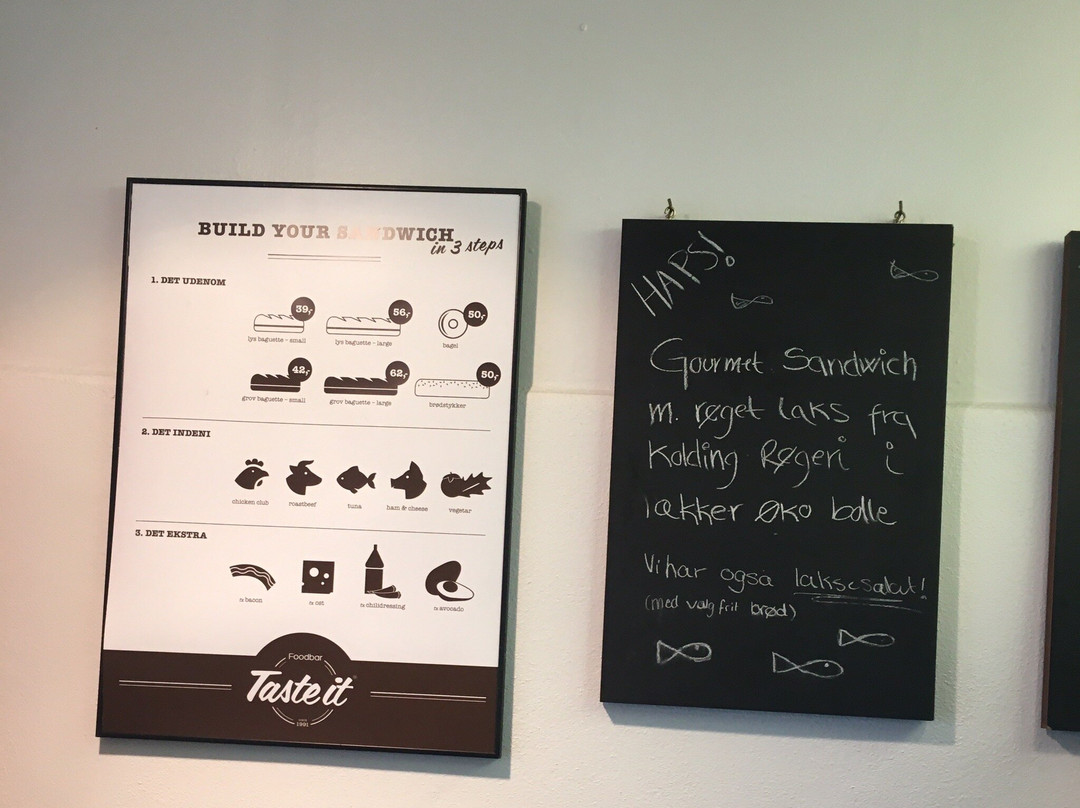 BUILD YOUR SANDWICH
in 3 steps
1. DET UDENOM
39,-
56,-
50,-
lys baguette - small
lys baguette - large
bagel
42,-
62,-
50,-
grov baguette - small
grov baguette - large
brødstykker
2. DET INDENI
chicken club
roastbeef
tuna
ham & cheese
vegetar
3. DET EKSTRA
bacon
ost
chilidressing
avocado
Foodbar
Taste it
SINCE
1991
HAPS!
Gourmet Sandwich
m. røget laks fra
Kolding Røgeri i
lækker øko bolle
Vi har også laksesalat!
(med valg frit brød)